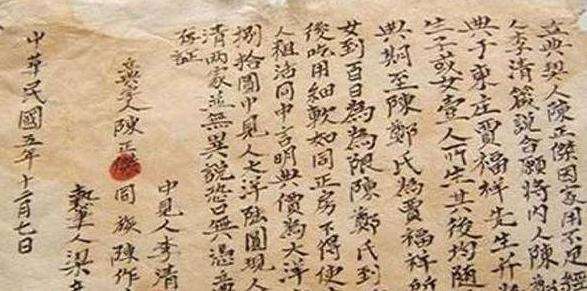 立典契人陳正傑因家用不足經
人李清箴説合願將内人陳鄭
典于東庄賈福祥先生並將
生子或女壹人所生其後均随
典期至陳鄭氏為賈福祥所
女到百日為為限陳鄭氏到
後吃用細軟如同正房不得使
人粗活同中言明典價為大洋
捌拾圓中見人大洋陆圓現人
清两家並無異說恐口無憑立
为証
中見人李清
立典字人陳正傑 同族陳作
執筆人梁
中華民國五年十二月七日